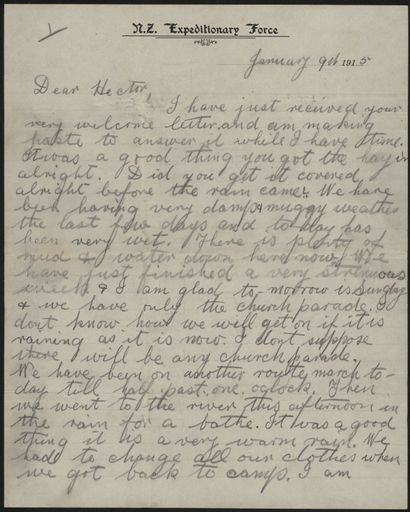 N.Z. Expeditionary Force
January 9th 1915
Dear Hector,
I have just received your
very welcome letter and am making
haste to answer it while I have time.
It was a good thing you got the hay in
alright. Did you get it covered
alright before the rain came. We have
been having very damp & muggy weather
the last few days and to-day has
been very wet. There is plenty of
mud & water down here now. We
have just finished a very strenuous
week & I am glad to-morrow is Sunday
& we have only the church parade. I
dont know how we will get on if it is
raining as it is now. I dont suppose
there will be any church parade.
We have been on another route march to-
day till half past one oclock. Then
we went to the river this afternoon in
the rain for a bathe. It was a good
thing it is a very warm rain. We
had to change all our clothes when
we got back to camp. I am